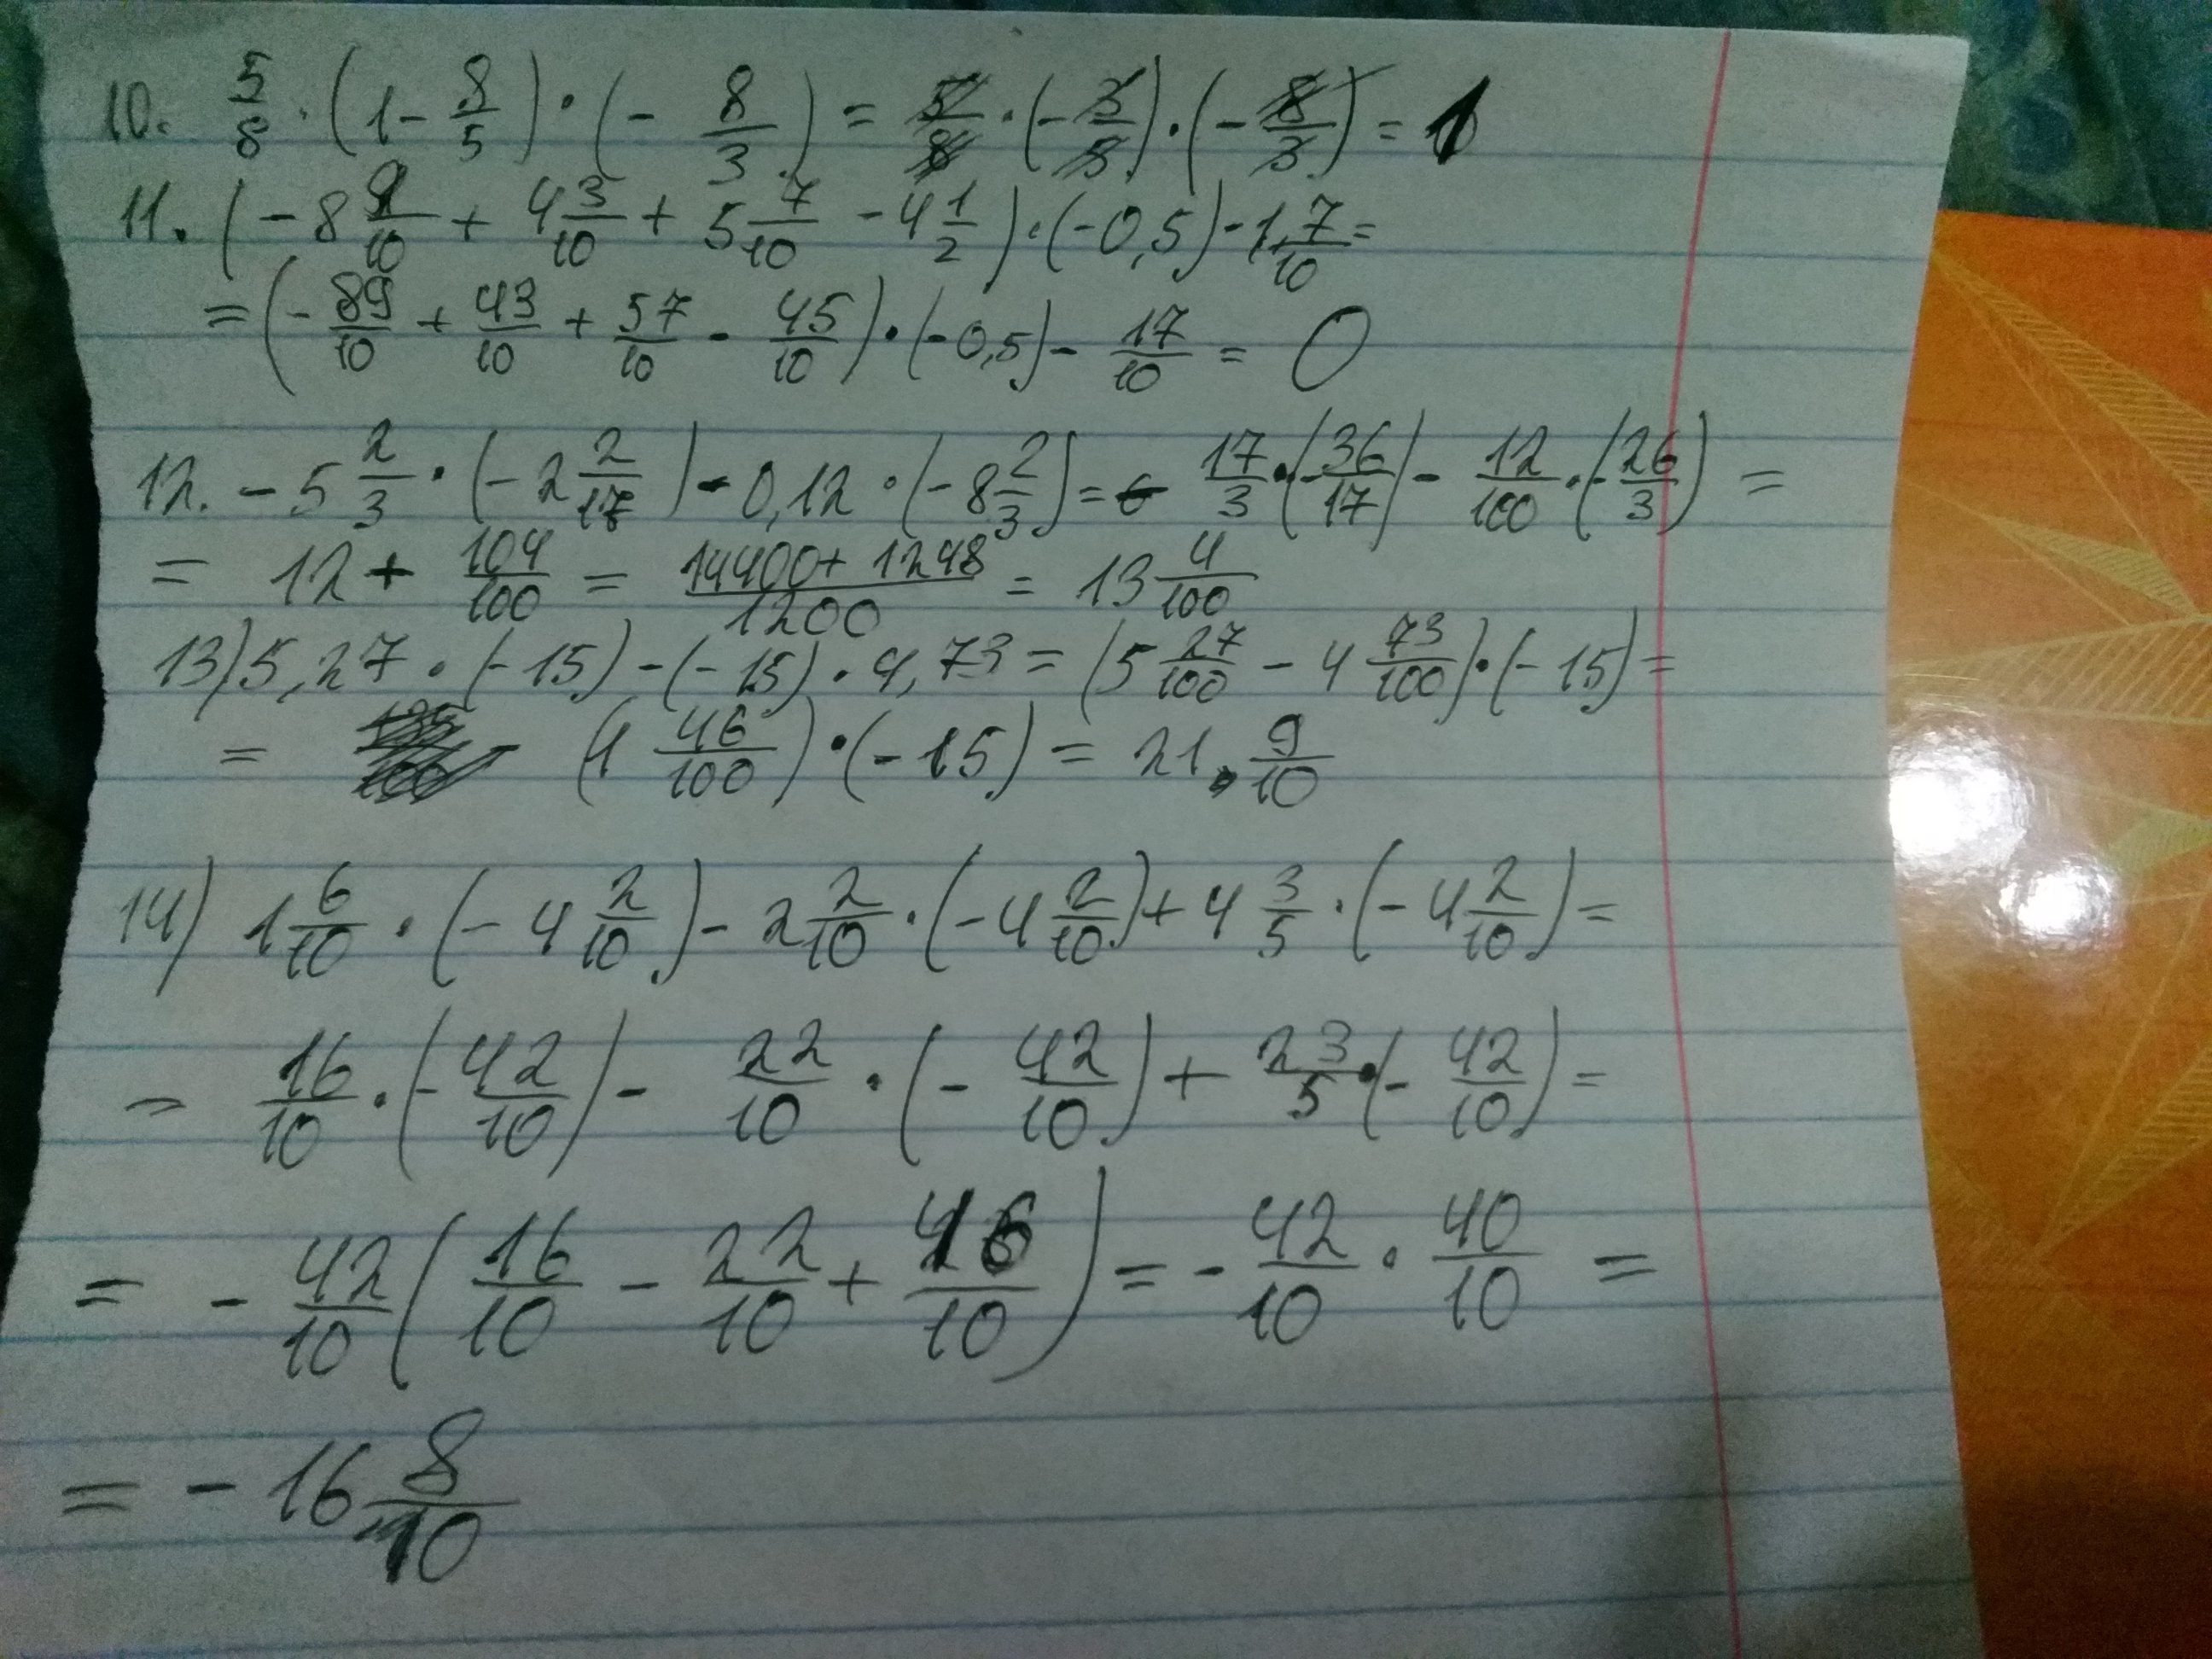 10. 5/8 · (1 - 8/5) · (- 8/3) = 5/8 · (- 3/5) · (- 8/3) = 1
11. (- 8 9/10 + 4 3/10 + 5 7/10 - 4 1/2) · (-0,5) - 1 7/10 =
= (- 89/10 + 43/10 + 57/10 - 45/10) · (-0,5) - 17/10 = 0
12. - 5 2/3 · (- 2 2/17) - 0,12 · (- 8 2/3) = - 17/3 · (- 36/17) - 12/100 · (- 26/3) =
= 12 + 104/100 = 14400 + 1248/1200 = 13 4/100
13) 5,27 · (-15) - (-15) · 4,73 = (5 27/100 - 4 73/100) · (-15) =
= (1 46/100) · (-15) = 21 9/10
14) 1 6/10 · (- 4 2/10) - 2 2/10 · (- 4 2/10) + 4 3/5 · (- 4 2/10) =
= 16/10 · (- 42/10) - 22/10 · (- 42/10) + 23/5 · (- 42/10) =
= - 42/10 (16/10 - 22/10 + 46/10) = - 42/10 · 40/10 =
= - 16 8/10